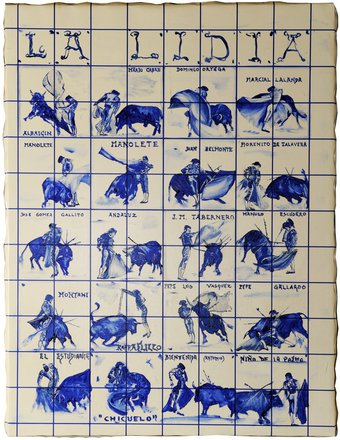 LA LIDIA
MARIO CABRÉ
DOMINGO ORTEGA
MARCIAL LALANDA
ALBAICIN
MANOLETE
MANOLETE
JUAN BELMONTE
MORENITO DE TALAVERA
JOSE GOMEZ GALLITO
ANDALUZ
J. M. TABERNERO
MANOLO ESCUDERO
MONTANI
PEPE LUIS VASQUEZ
PEPE GALLARDO
EL ESTUDIANTE
BIENVENIDA (ANTONIO)
NIÑO DE LA PALMA
"CHICUELO"